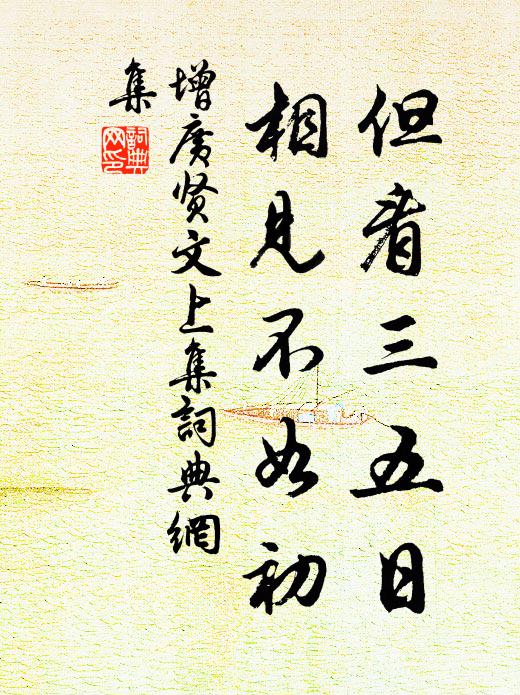 但看三五日
相見不如初
增廣贤文上集詞典網
集
詞典
网印